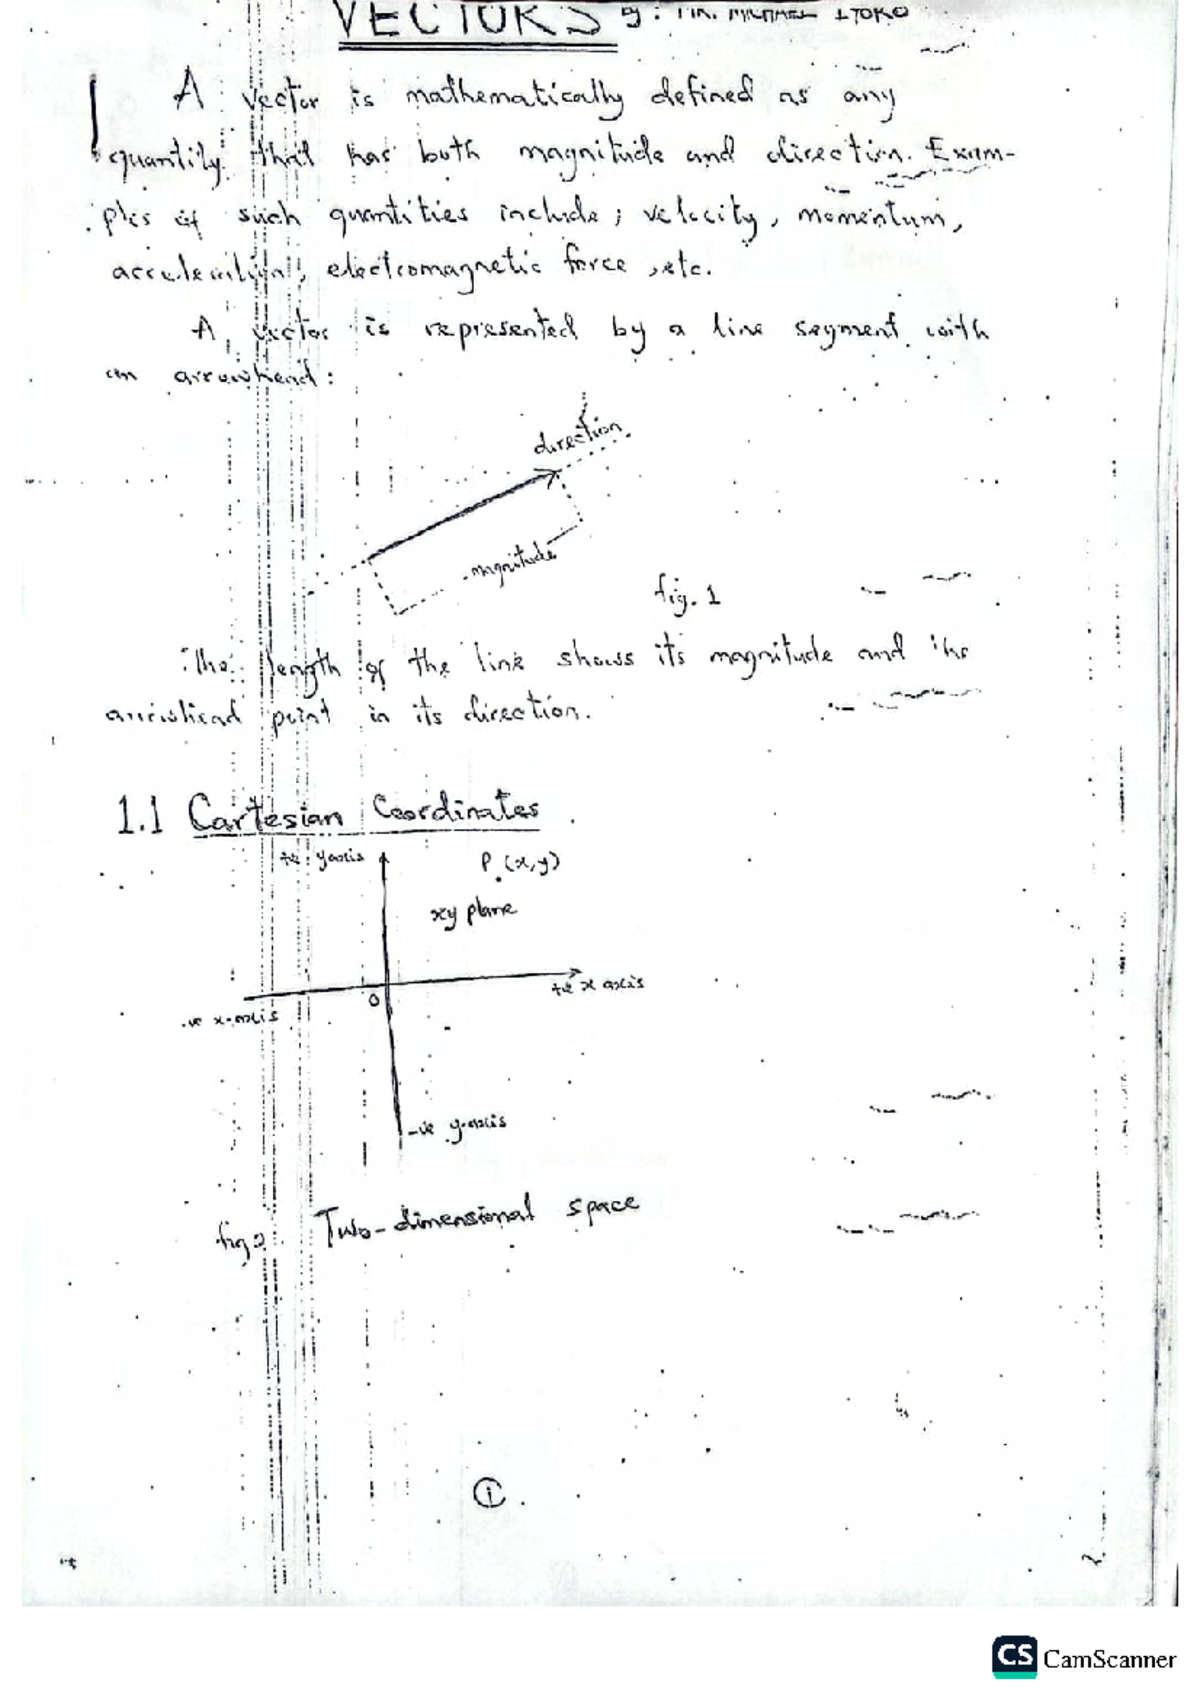 VECTORS By: MR. MICHAEL ITOKO
A vector is mathematically defined as any
quantity that has both magnitude and direction. Exam-
ples of such quantities include; velocity, momentum,
acceleration, electromagnetic force, etc.
A vector is represented by a line segment with
an arrowhead:
direction
magnitude
fig. 1
The length of the line shows its magnitude and the
arrowhead point in its direction.
1.1 Cartesian Coordinates
+ve y axis
P (x,y)
xy plane
+ve x axis
0
-ve x-axis
-ve y-axis
fig 2. Two-dimensional space
1
CS CamScanner